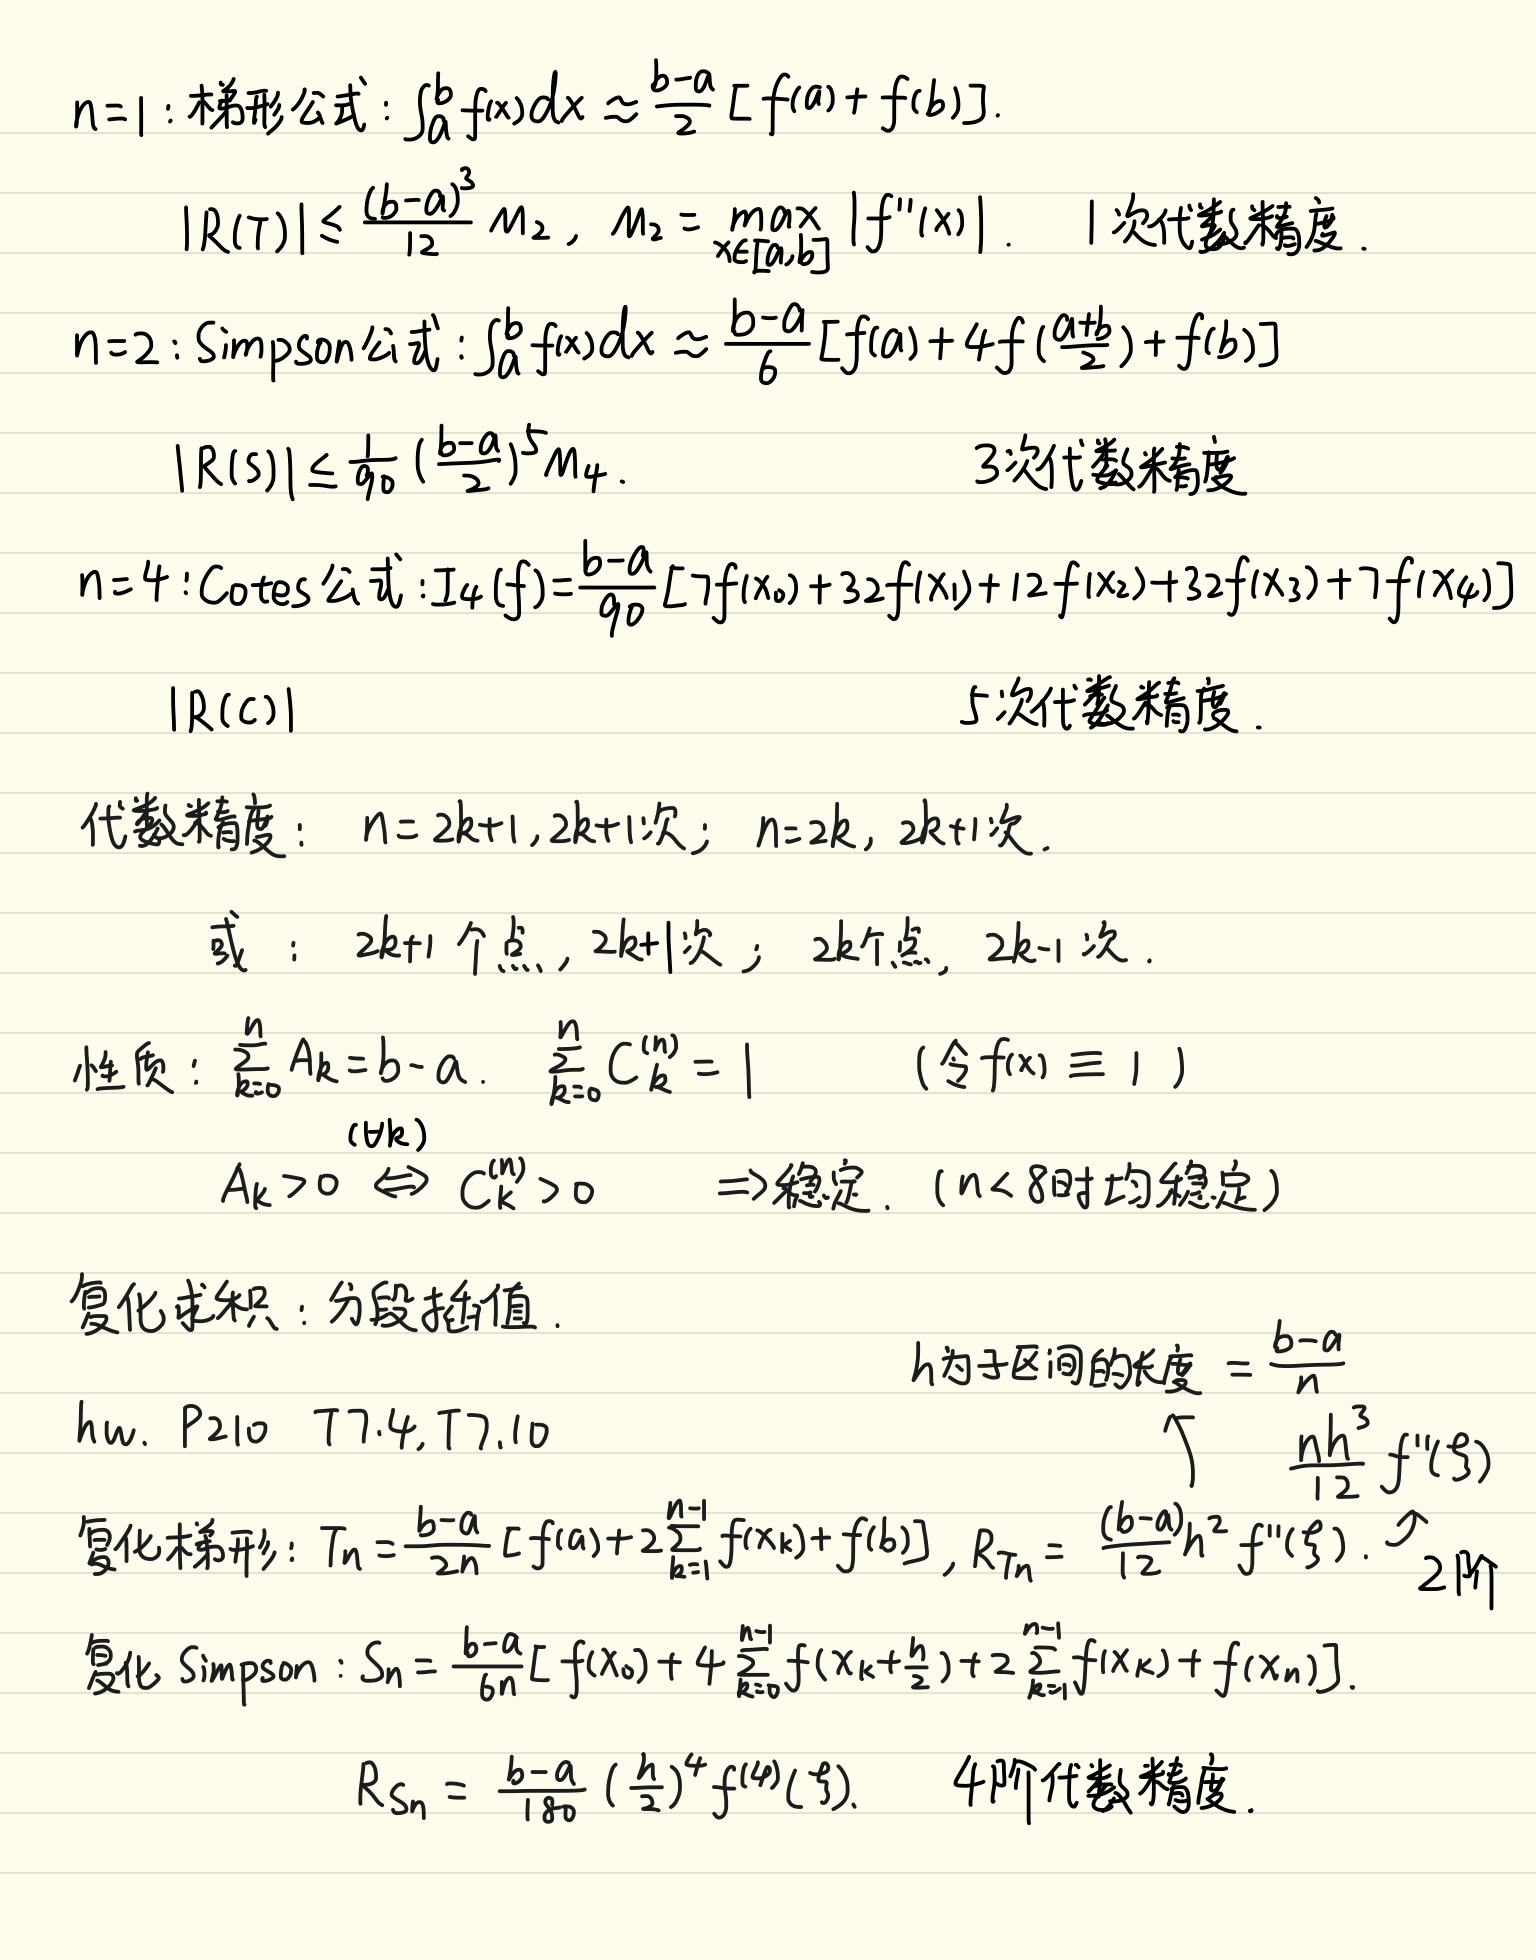 n=1：梯形公式：∫_a^b f(x)dx ≈ \frac{b-a}{2} [f(a)+f(b)].
|R(T)| ≤ \frac{(b-a)^3}{12} M_2, M_2 = \max_{x∈[a,b]} |f''(x)|. 1次代数精度.
n=2：Simpson公式：∫_a^b f(x)dx ≈ \frac{b-a}{6} [f(a)+4f(\frac{a+b}{2})+f(b)]
|R(S)| ≤ \frac{1}{90} (\frac{b-a}{2})^5 M_4. 3次代数精度
n=4：Cotes公式：I_4(f)=\frac{b-a}{90} [7f(x_0)+32f(x_1)+12f(x_2)+32f(x_3)+7f(x_4)]
|R(C)| 5次代数精度.
代数精度： n=2k+1, 2k+1次； n=2k, 2k+1次.
或： 2k+1个点, 2k+1次； 2k个点, 2k-1次.
性质：\sum_{k=0}^{n} A_k = b-a. \sum_{k=0}^{n} C_k^{(n)} = 1 (令f(x)≡1)
(∀k)
A_k>0 ⇔ C_k^{(n)}>0 ⇒稳定. (n<8时均稳定)
复化求积：分段插值.
h为子区间的长度 = \frac{b-a}{n}
hw. P210 T7.4, T7.10
↑ \frac{nh^3}{12} f''(ξ)
复化梯形：T_n = \frac{b-a}{2n} [f(a)+2\sum_{k=1}^{n-1} f(x_k)+f(b)], R_{T_n} = \frac{(b-a)}{12} h^2 f''(ξ).
2阶
复化Simpson：S_n = \frac{b-a}{6n} [f(x_0)+4\sum_{k=0}^{n-1} f(x_k+\frac{h}{2})+2\sum_{k=1}^{n-1} f(x_k)+f(x_n)].
R_{S_n} = \frac{b-a}{180} (\frac{h}{2})^4 f^{(4)}(ξ). 4阶代数精度.